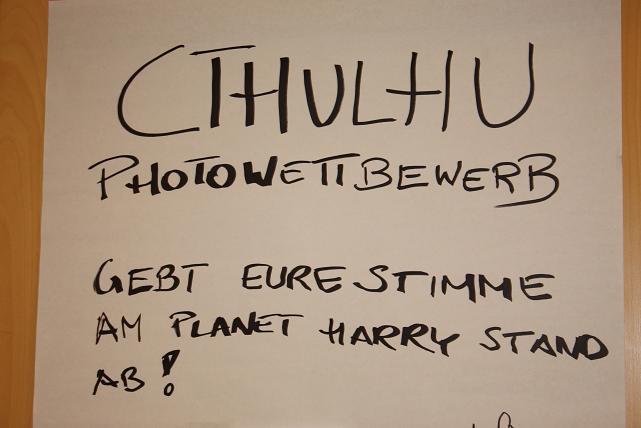 CTHULHU
PHOTOWETTBEWERB
GEBT EURE STIMME
AM PLANET HARRY STAND
AB!